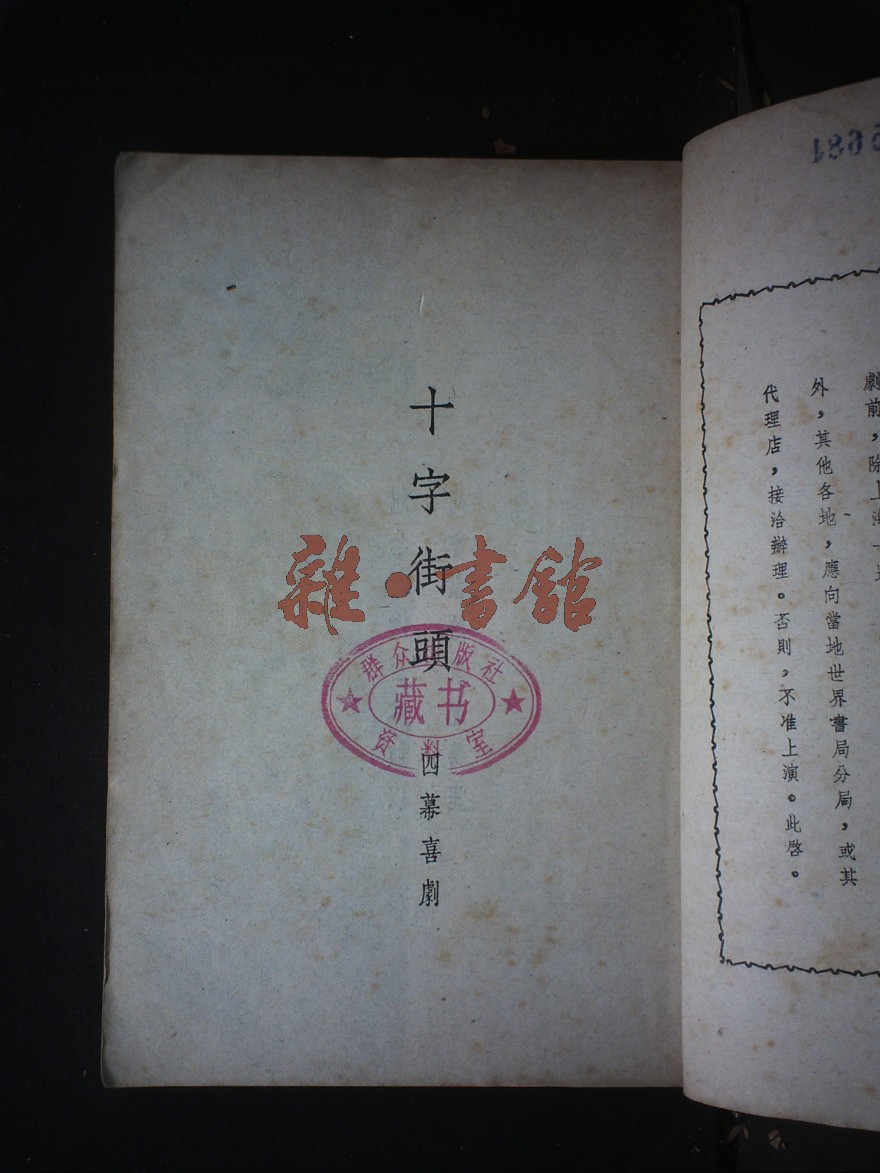 十字街頭
四幕喜劇
雜·書館
群众出版社
藏书
资料室
劇前，除上海
外，其他各地，應向當地世界書局分局，或其
代理店，接洽辦理。否則，不准上演。此啓。